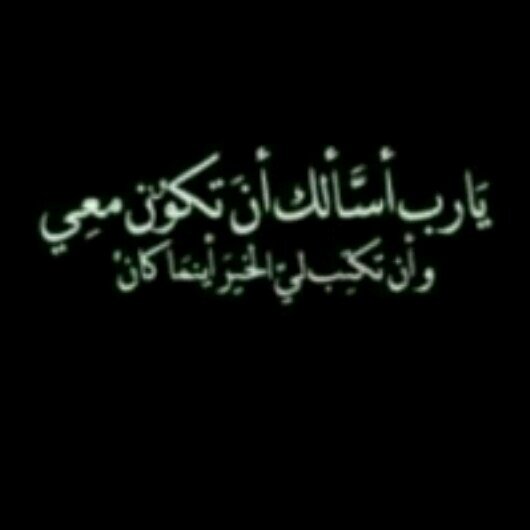 يَارب أسَّألك أنَ تَكوْن معِي
و أن تَكتِب ليْ الخيِرَ أينمَا كانْ